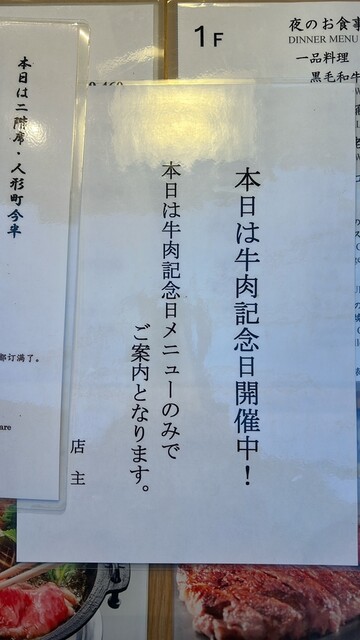 1F
夜のお食事
DINNER MENU
一品料理
黒毛和牛
本日は牛肉記念日開催中！
本日は牛肉記念日メニューのみで
ご案内となります。
店主
本日は二階席・人形町今半
部订满了。